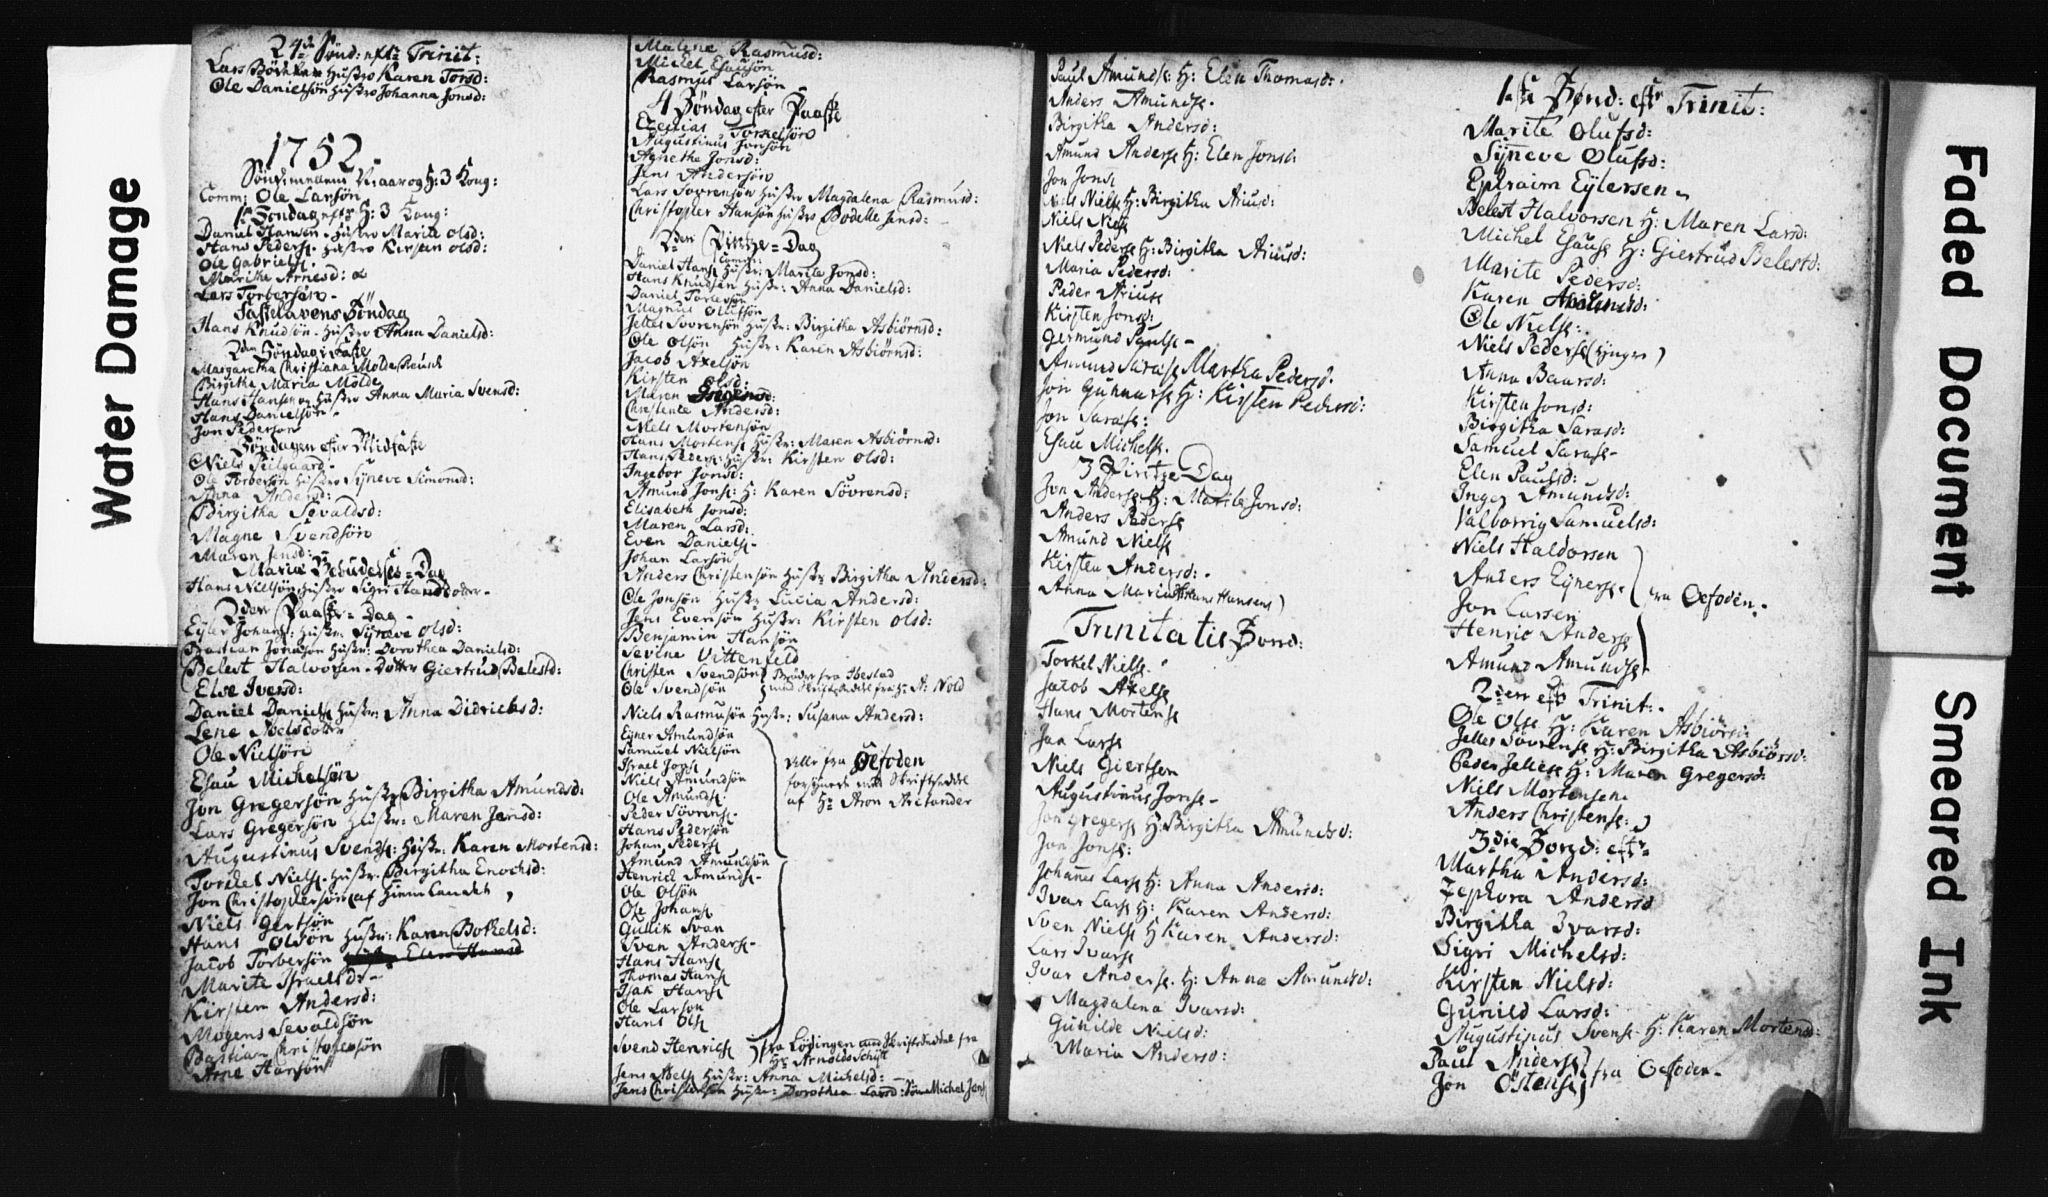 Water Damage
24de Sønd: eft: Trinit:
Lars Bödker Hustro Karen Torsd:
Ole Danielsön Hustro Johanna Jonsd:
1752
Sönd: mellem Nÿaar og H: 3 Kong:
Comm: Ole Larsön
1ste Söndag eft: H: 3 Kong:
Daniel Hansen. Hustro Marite Olsd:
Hans Peders. Hustro Kirsten Olsd:
Ole Gabriels.
Marithe Arnesd:
Lars Torbersön
Fastelavens Söndag
Hans Knudsön. Hustro Anna Danielsd:
2den Söndag i Faste
Margaretha Christiana Molde
Birgitha Maria Molde
Hans Hansen Hustro Anna Maria Svensd:
Hans Danielsön
Jon Pederson
Söndagen efter Midfaste
Niels Peilgaard
Ole Torbersön Hustro Syneve Simonsd:
Anna Andersd:
Birgitha Sevaldsd:
Magne Svendsön
Maren Jensd:
Mariæ Bebudelses=Dag
Hans Nielsön Hustro Sigri Hansdotter
2den Paaske=Dag
Eyler Johans: Hustr: Syneve Olsd:
Bastian Johansön Hustr: Dorothea Danielsd:
Belest Halvorsen. Dotter Giertrud Belestd:
Else Iversd:
Daniel Daniels Hustr: Anna Didrichsd:
Lene Nielsdotter
Ole Nielsön
Esau Michelsön
Jon Gregersön Hustr: Birgitha Amundsd:
Lars Gregersön Hustr: Maren Jensd:
Augustinus Svends: Hustr: Karen Mortensd:
Torckel Niels. Hustr: Birgitha Enochsd:
Jon Christophersön (af Hinnlandet)
Niels Gertsön
Hans Olsön Hustr: Karen Botkelsd:
Jacob Torbersön Elen Hansd
Marite Israelsd:
Kirsten Andersd:
Mogens Sevaldsön
Bastian Christophersön
Arne Hansön
Malene Rasmusd:
Michel Esausön
Rasmus Larsön
4 Söndag efter Paaske
Ezechias Torkelsön
Augustinus Jonsön
Agnetha Jonsd:
Jens Andersön
Lars Sövrensön Hustr Magdalena Rasmusd:
Christopher Hansön Hustro Bodelle Jensd:
2den Pintze=Dag
Comm:
Daniel Hans Hustr: Marite Jonsd:
Hans Knudsen Hustr: Anna Danielsd:
Daniel Torlefsön
Magnus Olufsön
Jelles Sövrensön Hustr: Birgitha Asbiörnsd:
Ole Olsön Hustr: Karen Asbiörnsd:
Jacob Axelsön
Kirsten Olsd:
Maren Gregersd:
Christence Andersd:
Niels Mortensön
Hans Mortens Hustr: Maren Asbiörnsd:
Hans Peders: Hustr: Kirsten Olsd:
Ingebor Jonsd:
Amund Jons: H: Karen Sövrensd:
Elisabeth Jonsd:
Maren Larsd:
Even Daniels.
Johan Larsön
Anders Christensön Hustr Birgitha Andersd:
Ole Jonsön Hustr Lucia Andersd:
Jens Evensön Hustr: Kirsten Olsd:
Benjamin Hansön
Sevine Vittenfeld
Christen Svendsön } Brödre fra Ibestad
Ole Svendsön } med Skriftseddel fra Hr A: Nold
Niels Rasmusön Hustr: Susana Andersd:
Egner Amundsön
Samuel Nielsön
Israel Jons
Niels Amundsön
Ole Amunds
Peder Sövrens.
Hans Pedersön
Johan Peders
Amund Amundsön
Henrich Amunds.
Ole Olsön
Ole Johans
Gullik Svan
Sven Anders.
Hans Hans
Thomas Hans
Isak Hans
Ole Larsön
Hans Ols
Alle fra Oefoden
forsynede med Skriftseddel
af Hr Aron Arctander
Svend Henrichs } fra Lödingen med Skriftseddel fra
Hr Arnoldo Schytt
Jens Niels Hustr: Anna Michelsd:
Jens Christensön Hustr: Dorothea Larsd: Sön Michel Jens
Paul Amunds: H: Elen Thomasd:
Anders Amunds.
Birgitha Andersd:
Amund Anders H: Elen Jonsd:
Jon Jons
Niels Niels H: Birgitha Ariusd:
Niels Niels
Niels Peders H: Birgitha Ariusd:
Maria Pedersd:
Peder Arius
Kirsten Jonsd:
Germund Pauls
Amund Saras Martha Pedersd.
Jon Gunnars H: Kirsten Pedersd:
Jon Saras:
Esau Michels.
3 Pintze Dag
Jon Anders H: Marite Jonsd:
Anders Peders
Amund Niels
Kirsten Andersd:
Anna Maria (Hans Hansens)
Trinitatis Sønd:
Torkel Niels.
Jacob Axels
Hans Mortens
Jan Lars
Niels Giertsen
Augustinus Jons.
Jon Gregers H: Birgitha Amundsd:
Jon Jons:
Johannes Lars H: Anna Andersd:
Ivar Lars H: Karen Andersd:
Sven Niels H Karen Andersd:
Lars Ivars
Ivar Anders. H: Anna Amundsd:
Magdalena Ivarsd:
Gunilde Nielsd:
Maria Andersd:
1ste Sønd: eftr Trinit:
Marite Olufsd:
Syneve Olufsd:
Ephraim Eylersen
Belest Halvorsen H: Maren Larsd:
Michel Esaus H: Giertrud Belestd:
Marite Pedersd:
Karen
Ole Niels:
Niels Peders (Ynger)
Anna Baarsd:
Kirsten Jonsd:
Birgitha Sarasd:
Samuel Saras
Elen Paulsd:
Inger Amundsd:
Valborrig Samuelsd:
Niels Haldorsen
Anders Egners.
Jon Larsen
Henric Anders
Amund Amunds
fra Oefoden.
2den eft Trinit:
Ole Ols H: Karen Asbiörsd:
Jelles Sövrens H: Birgitha Asbiörsd:
Peder Jelles H: Maren Gregersd:
Niels Mortensen
Anders Christens:
3die Sønd: eftr
Martha Andersd:
Zephora Andersd
Birgitha Ivarsd:
Sigri Michelsd:
Kirsten Nielsd:
Gunild Larsd:
Augustinus Svens H: Karen Mortensd:
Paul Anders } fra Oefoden
Jon Östens
Faded Document
Smeared Ink